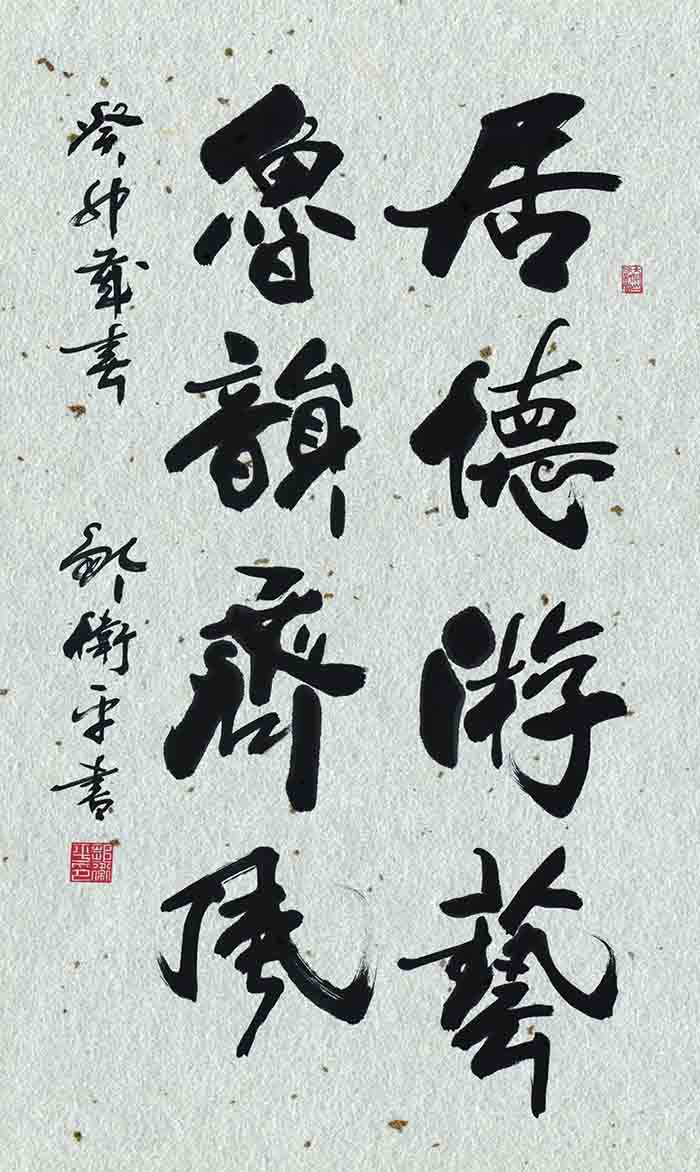 居德游藝
魯韻齊風
癸卯歲春
鄒衛平書